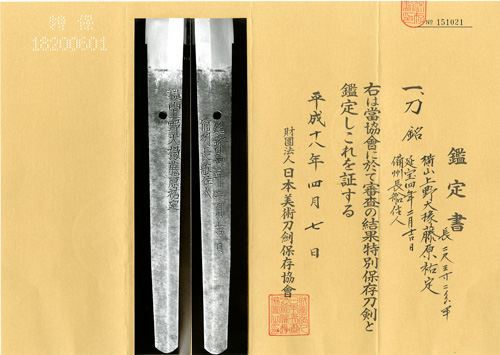 № 151021
鑑定書
一、刀 銘
横山上野大掾藤原祐定
延宝四年二月吉日
備州長船住人
長二尺三寸二分半
右は當協會に於て審査の結果特別保存刀剣と
鑑定しこれを証する
平成十八年四月七日
財團法人 日本美術刀劍保存協會
18200601